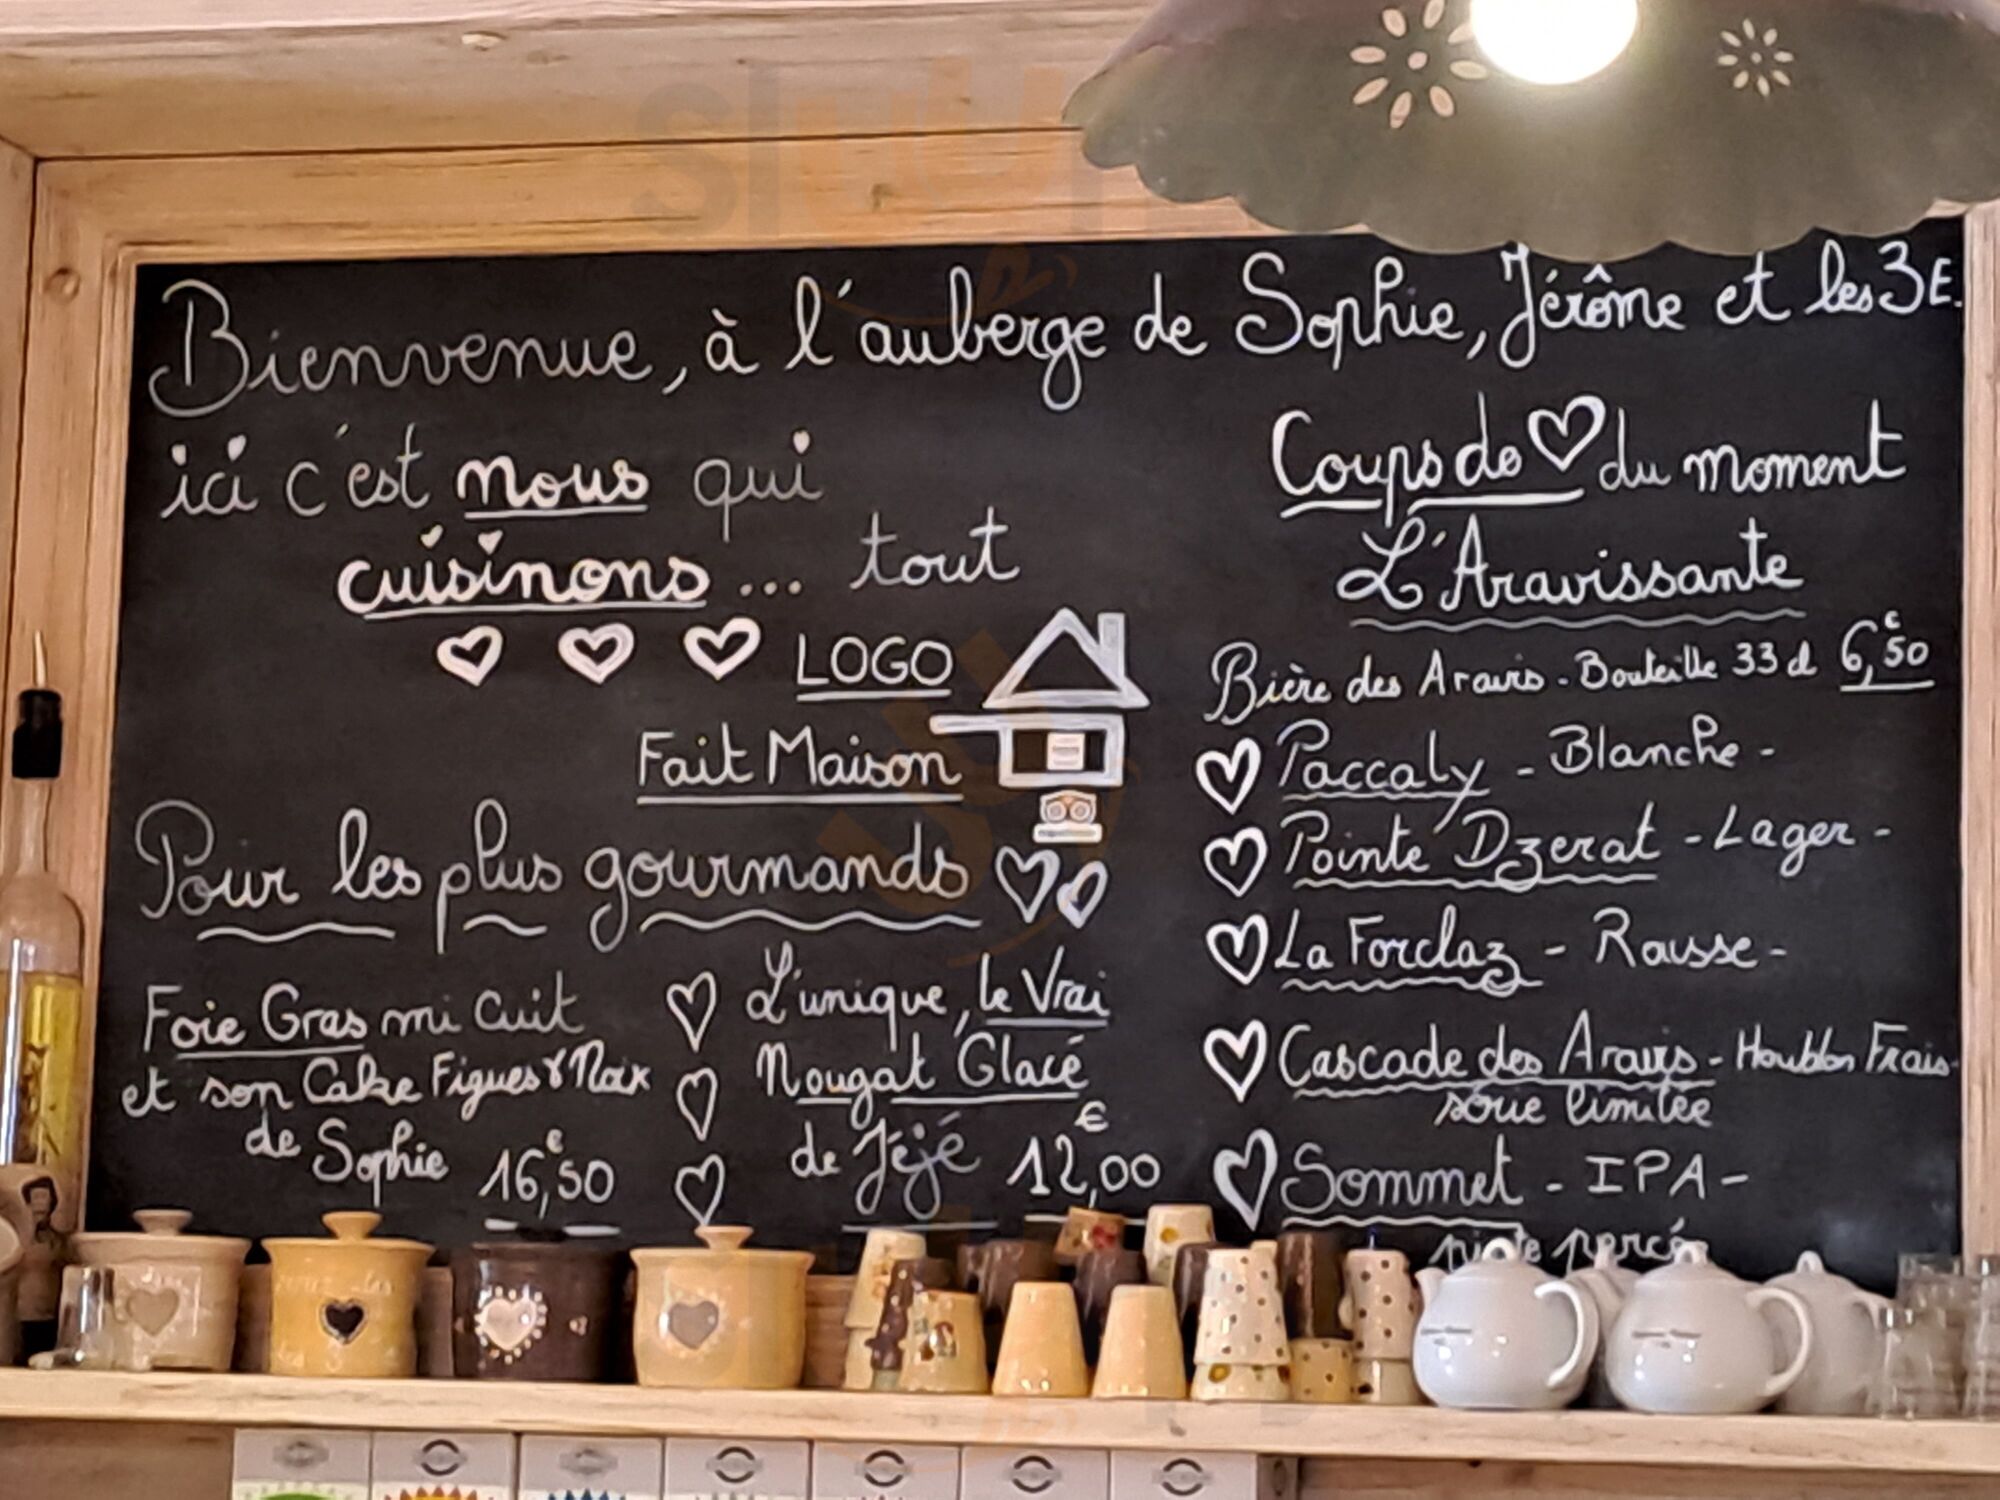 Bienvenue, à l'auberge de Sophie, Jérôme et les 3E.
ici c'est nous qui
cuisinons ... tout
LOGO
Fait Maison
Pour les plus gourmands
Foie Gras mi cuit
et son Cake Figues & Noix
de Sophie 16,€50
L'unique, le Vrai
Nougat Glacé
de Jéjé 12,€00
Coups de du moment
L'Aravissante
Bière des Aravis - Bouteille 33 cl 6,€50
Paccaly - Blanche -
Pointe Dzerat - Lager -
La Forclaz - Rousse -
Cascade des Aravis - Houblon Frais -
série limitée
Sommet - IPA -
pointe percée